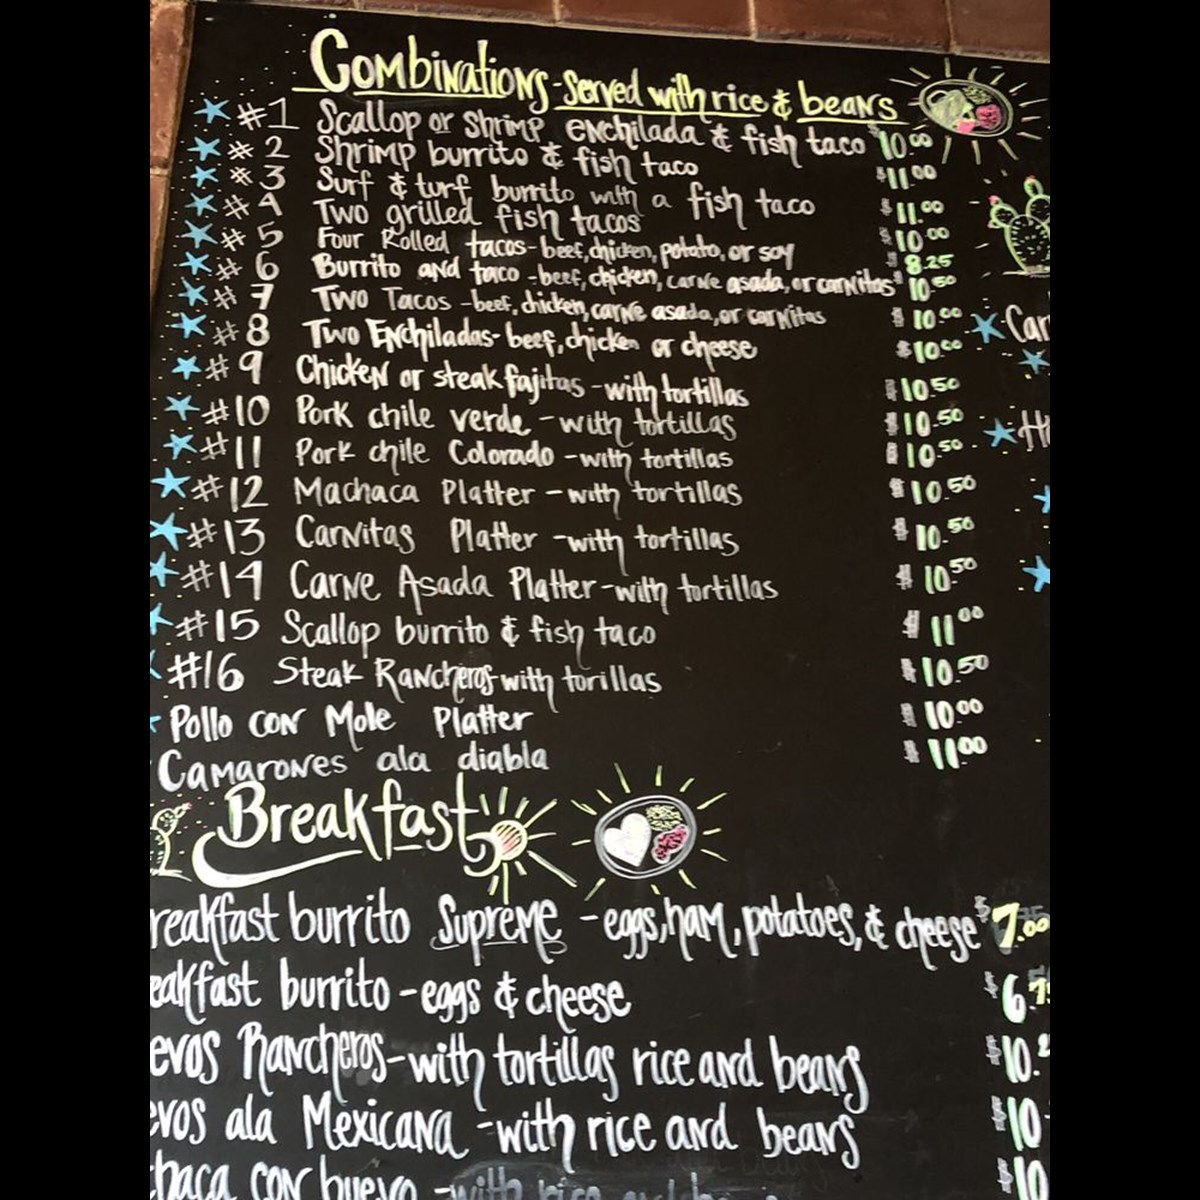 Combinations - served with rice & beans
#1 Scallop or Shrimp enchilada & fish taco $10.00
#2 Shrimp burrito & fish taco $11.00
#3 Surf & turf burrito with a fish taco $11.00
#4 Two grilled fish tacos $10.00
#5 Four Rolled tacos - beef, chicken, potato, or soy $8.25
#6 Burrito and taco - beef, chicken, carne asada, or carnitas $10.50
#7 Two Tacos - beef, chicken, carne asada, or carnitas $10.00
#8 Two Enchiladas - beef, chicken or cheese $10.00
#9 Chicken or steak fajitas - with tortillas $10.50
#10 Pork chile verde - with tortillas $10.50
#11 Pork chile Colorado - with tortillas $10.50
#12 Machaca Platter - with tortillas $10.50
#13 Carnitas Platter - with tortillas $10.50
#14 Carne Asada Platter - with tortillas $10.50
#15 Scallop burrito & fish taco $11.00
#16 Steak Rancheros with torillas $10.50
Pollo con Mole Platter $10.00
Camarones ala diabla $11.00
Car
Breakfast
reakfast burrito Supreme - eggs, ham, potatoes, & cheese $7.00
eakfast burrito - eggs & cheese $6.75
evos Rancheros - with tortillas rice and beans $10.2
evos ala Mexicana - with rice and beans $10
haca con huevo - with rice and $10